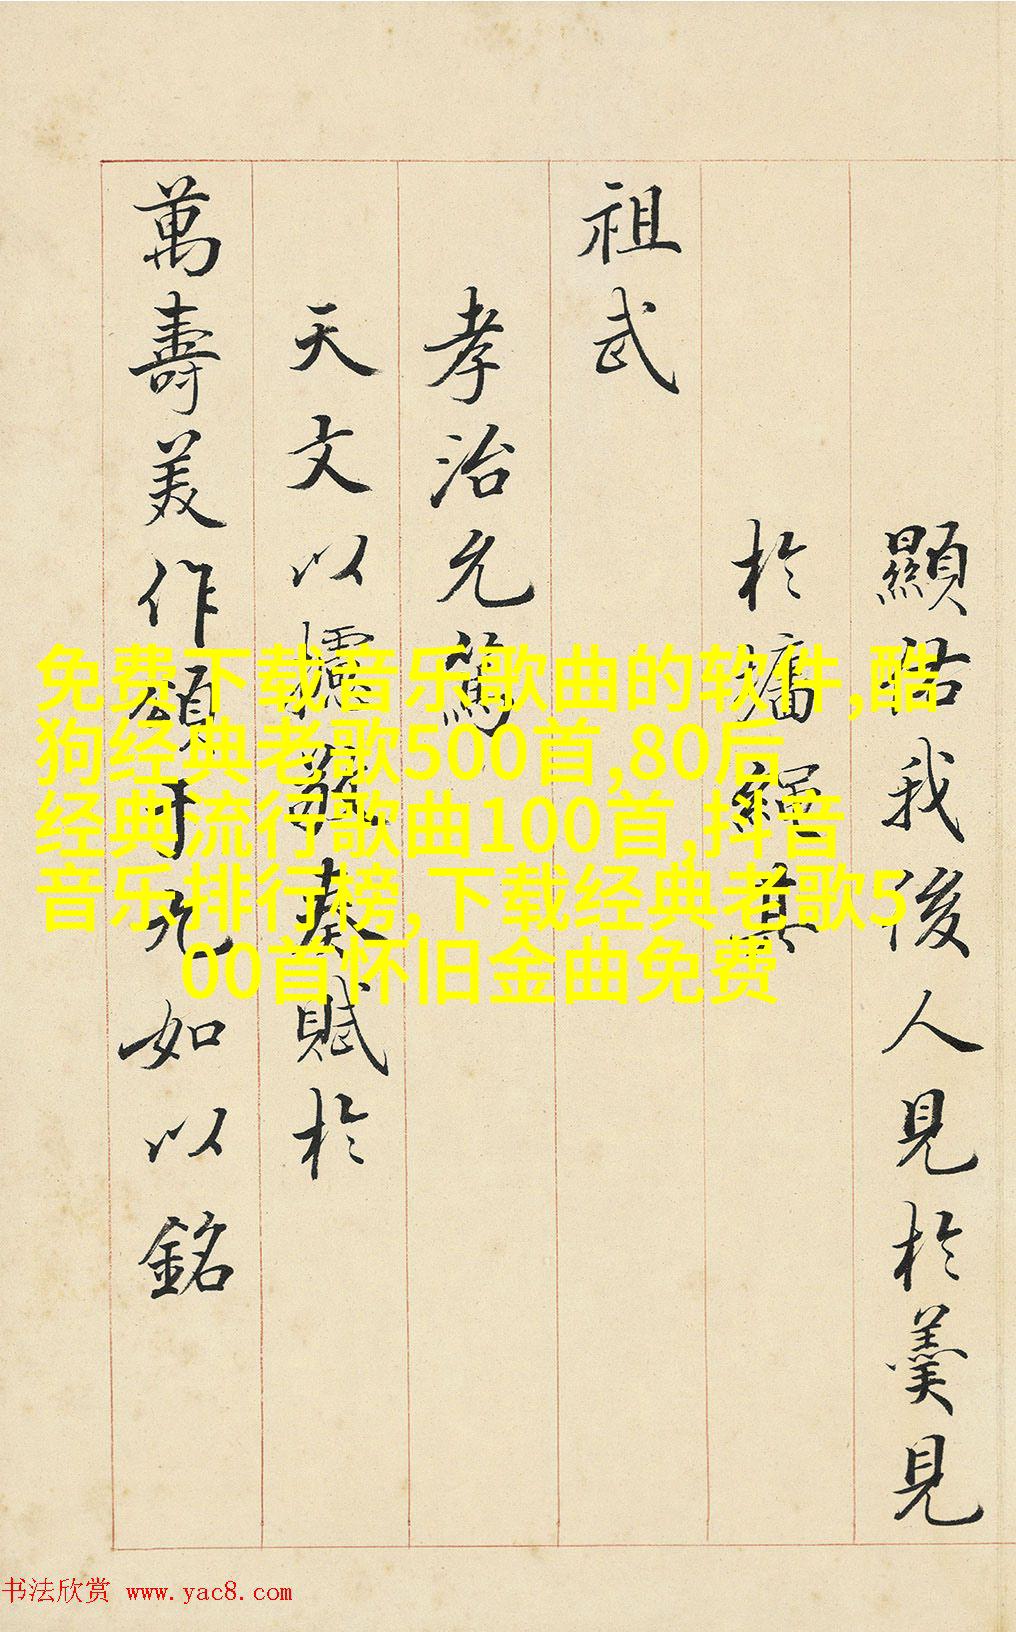 顯我後人見於羹見
於墻繩其
祖武
孝治允篤
天文以奏賦於
萬壽美作頌于九如以銘
免费下载音乐歌曲的软件,酷
狗经典老歌500首,80后
经典流行歌曲100首,抖音
音乐排行榜,下载经典老歌5
00首怀旧金曲免费
书法欣赏 www.yac8.com